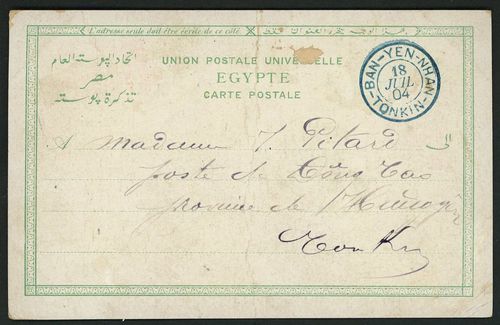 L'adresse seule doit être écrite de ce côté
UNION POSTALE UNIVERSELLE
EGYPTE
CARTE POSTALE
اتحاد البوستة العام
مصر
تذكرة بوستة
BAN-YEN-NHAN
18
JUIL
04
-TONKIN-
A Madame J. Pitard الى
poste de Đông Cao
province de
Tonkin